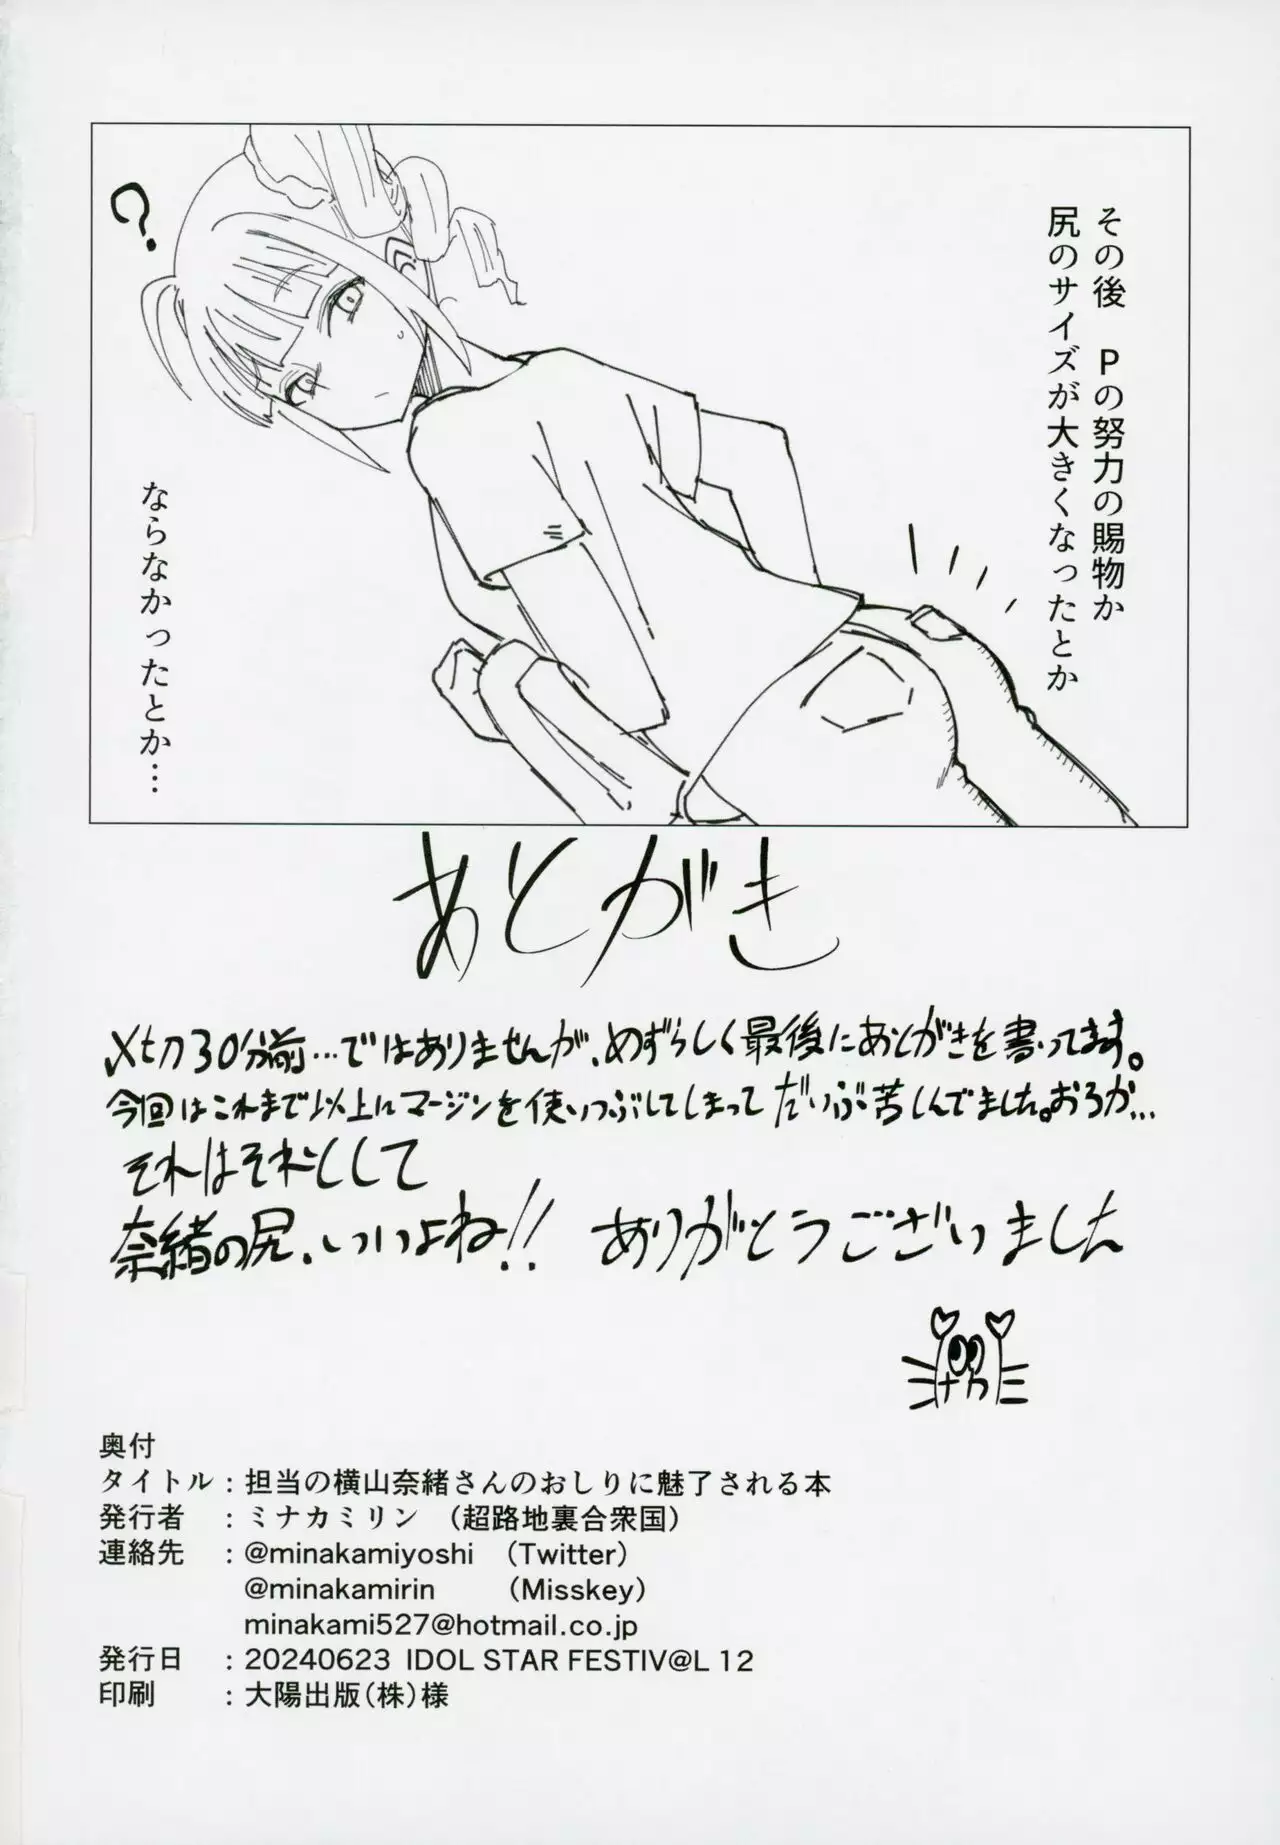 その後　Pの努力の賜物か
尻のサイズが大きくなったとか
?
ならなかったとか…
あとがき
〆切30分前…ではありませんが、めずらしく最後にあとがきを書いてます。
今回はこれまで以上にマージンを使いつぶしてしまってだいぶ苦しんでました。おろか…
それはそれとして
奈緒の尻、いいよね!! ありがとうございました
ナカ
奥付
タイトル：担当の横山奈緒さんのおしりに魅了される本
発行者　：ミナカミリン　（超路地裏合衆国）
連絡先　：@minakamiyoshi　（Twitter）
@minakamirin　（Misskey）
minakami527@hotmail.co.jp
発行日　：20240623 IDOL STAR FESTIV@L 12
印刷　：大陽出版（株）様